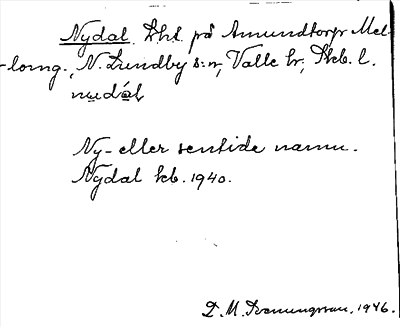 Nydal. Lht. på Amundtorp Mel-
lomg., N. Lundby s:n, Valle hr, Skb. l.
nudál
Ny- eller sentida namn.
Nydal kb. 1940.
D. M. 1946.